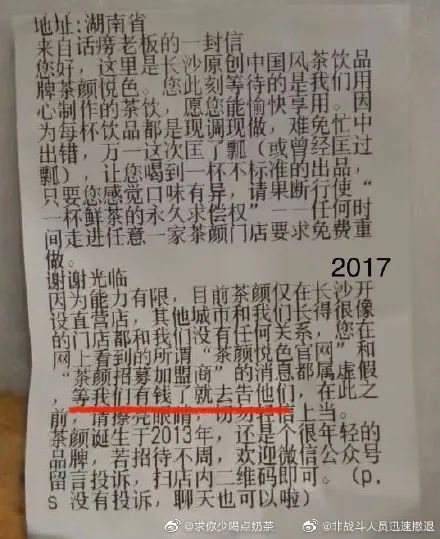 地址:湖南省
来自话痨老板的一封信
您好，这里是长沙原创中国风茶饮品
牌茶颜悦色。您此刻等待的是我们用
心制作的茶饮，愿您能愉快享用。因
为每杯饮品都是现调现做，难免忙中
出错，万一这次匡了瓢（或曾经匡过
瓢），让您喝到一杯不标准的出品，
只要您感觉口味有异，请果断行使“
一杯鲜茶的永久求偿权”——任何时
间走进任意一家茶颜门店要求免费重
做。
2017
谢谢光临
因为能力有限，目前茶颜仅在长沙开
设直营店，其他城市和我们长得很像
的门店都和我们没有任何关系，您在
网上看到的所谓“茶颜悦色官网”和
“茶颜招募加盟商”的消息都属虚假
，等我们有钱了就去告他们，此之
前，请擦亮眼睛，切勿轻信上当。
茶颜诞生于2013年，还是个很年轻的
品牌，若招待不周，欢迎微信公众号
留言投诉，扫店内二维码即可。（p.
s 没有投诉，聊天也可以啦）
@求你少喝点奶茶
@非战斗人员迅速撤退